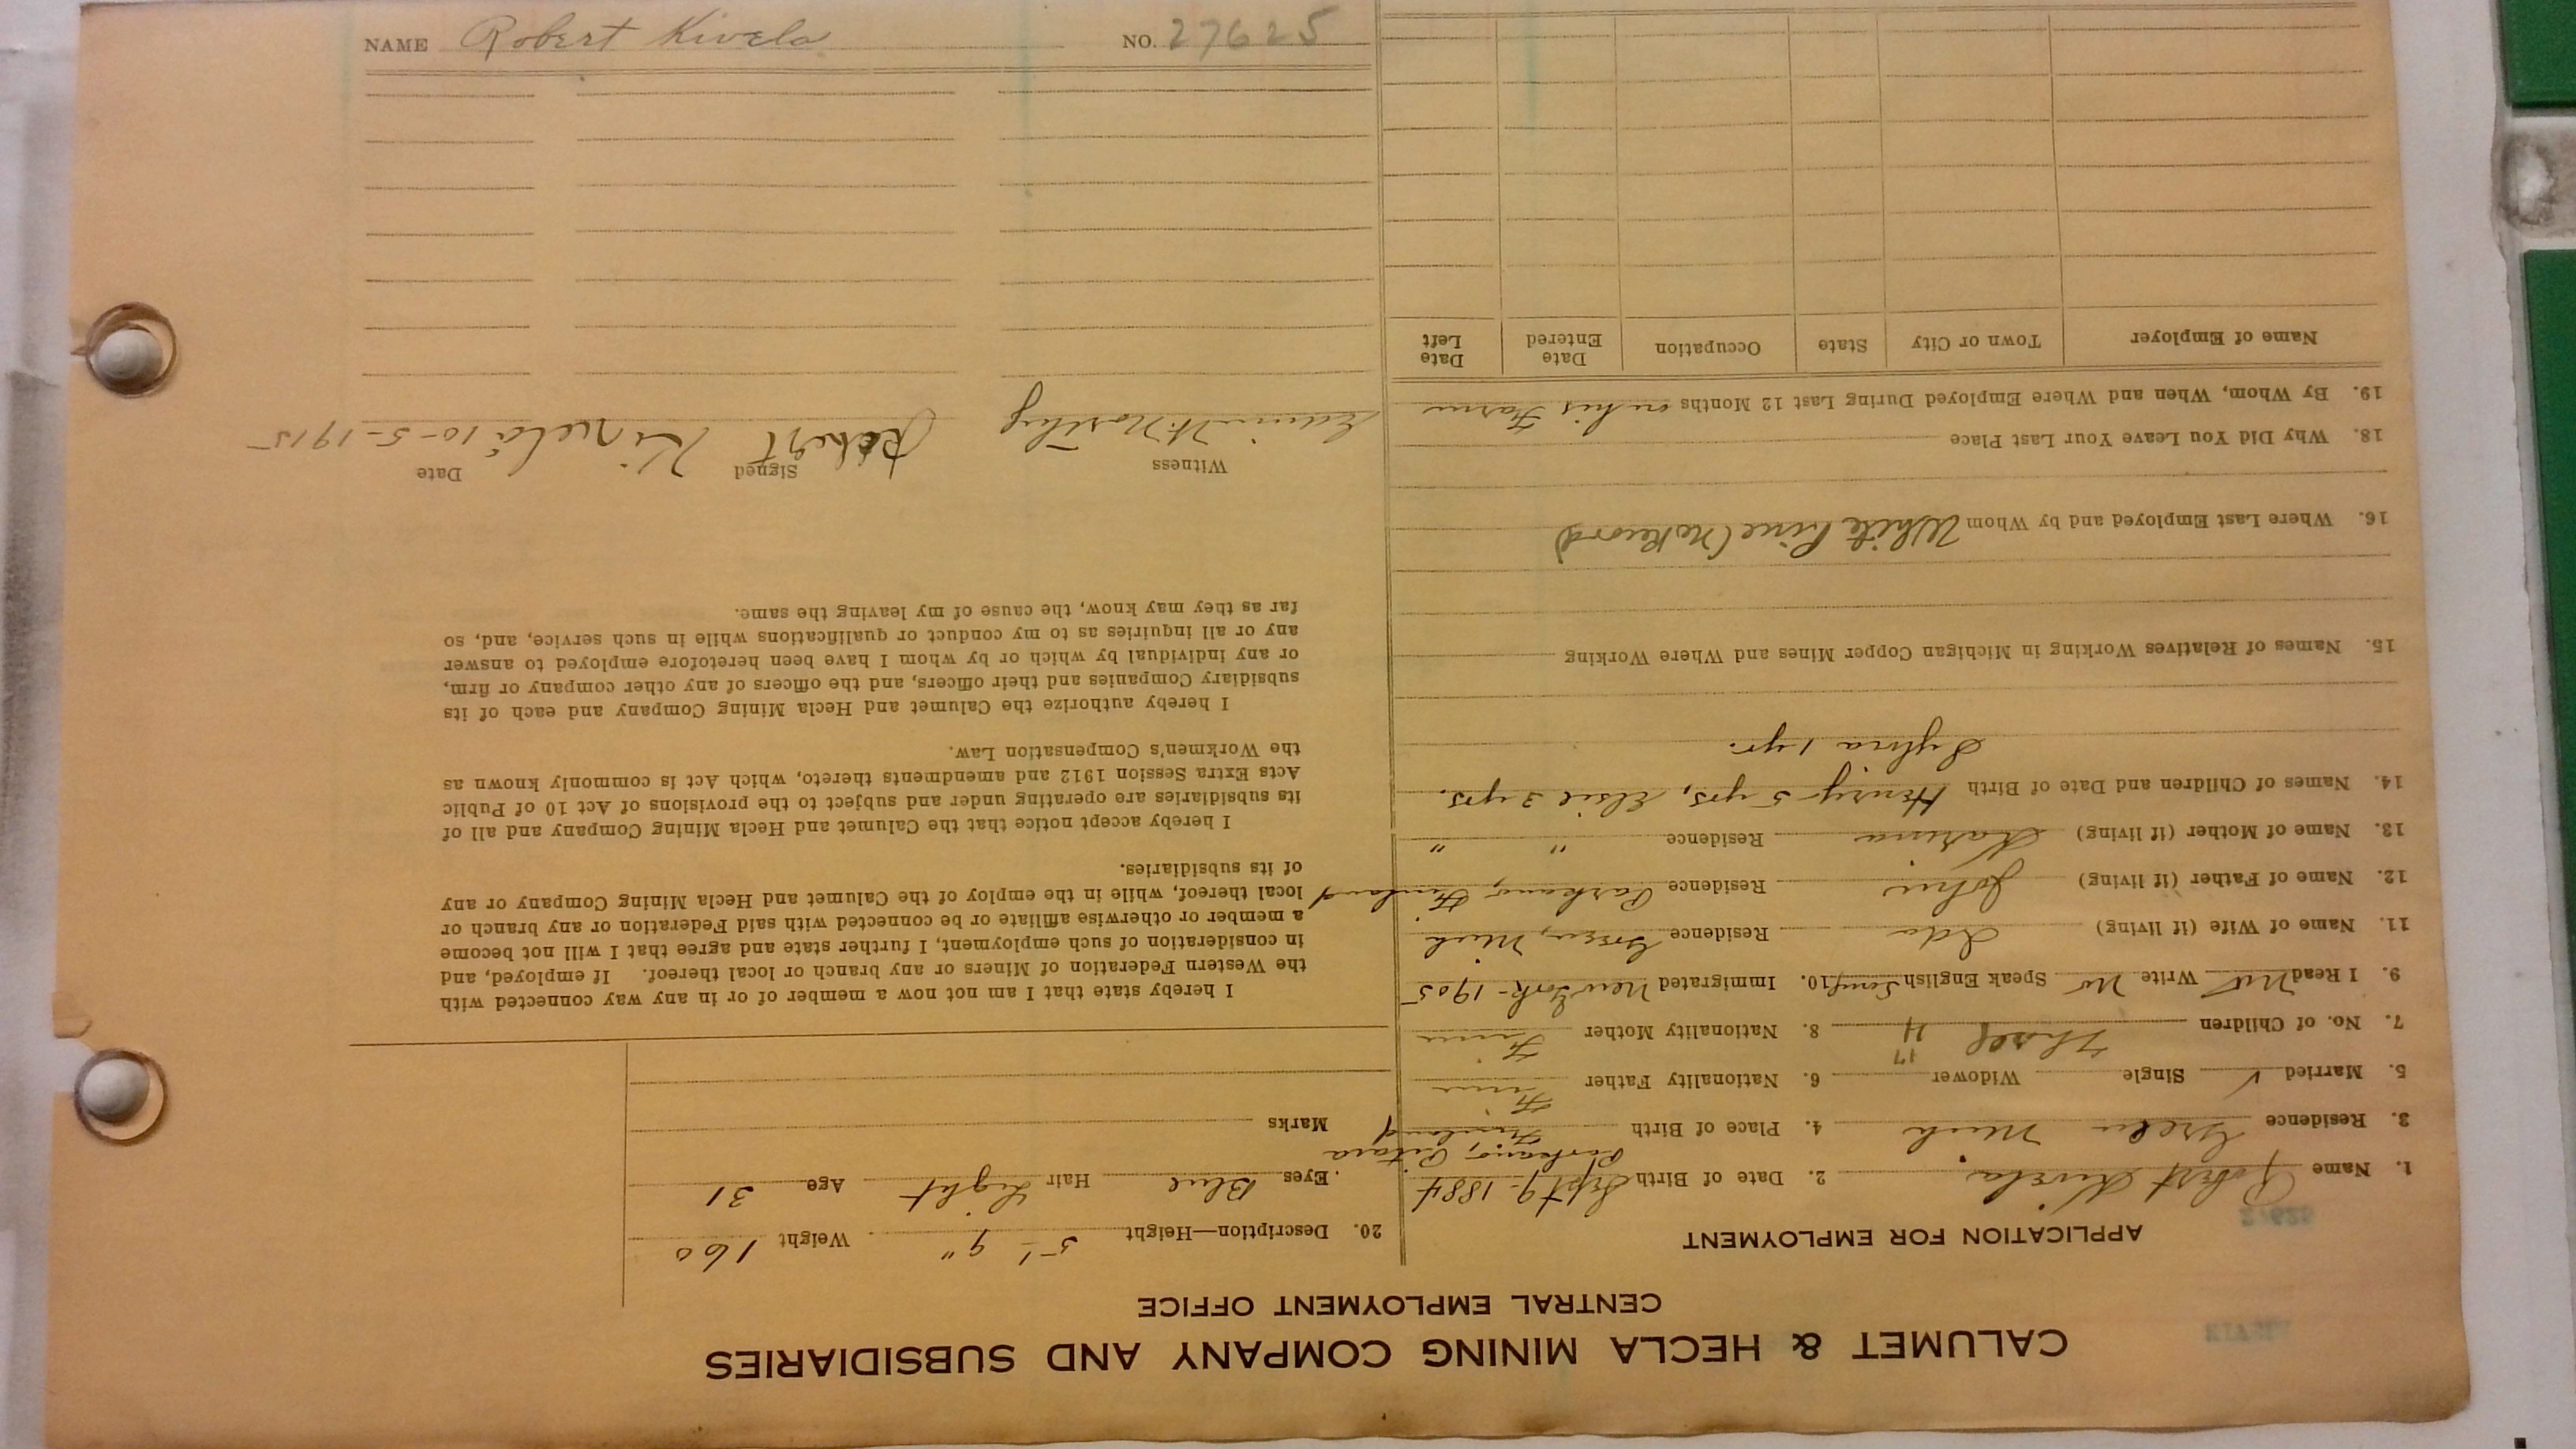 CALUMET & HECLA MINING COMPANY AND SUBSIDIARIES
CENTRAL EMPLOYMENT OFFICE
APPLICATION FOR EMPLOYMENT
27625
1. Name Robert Kivela 2. Date of Birth Sept 9-1884
3. Residence Green Mich 4. Place of Birth Parkano, Finland
5. Married √ Single Widower 6. Nationality Father Finn
7. No. of Children Three 4 17 8. Nationality Mother Finn
9. I Read Write No Speak English 10. Immigrated New York-1905
11. Name of Wife (if living) Ida Residence Green, Mich
12. Name of Father (if living) John Residence Parkano, Finland
13. Name of Mother (if living) Residence " "
14. Names of Children and Date of Birth Henry 5 yrs, Elsie 3 yrs.
Sylvia 1 yr.
15. Names of Relatives Working in Michigan Copper Mines and Where Working
16. Where Last Employed and by Whom White Pine (No Record)
18. Why Did You Leave Your Last Place
19. By Whom, When and Where Employed During Last 12 Months on his Farm
Name of Employer Town or City State Occupation Date Entered Date Left
20. Description—Height 5' 9" Weight 160
Eyes Blue Hair Light Age 31
Marks
I hereby state that I am not now a member of or in any way connected with
the Western Federation of Miners or any branch or local thereof. If employed, and
in consideration of such employment, I further state and agree that I will not become
a member or otherwise affiliate or be connected with said Federation or any branch or
local thereof, while in the employ of the Calumet and Hecla Mining Company or any
of its subsidiaries.
I hereby accept notice that the Calumet and Hecla Mining Company and all of
its subsidiaries are operating under and subject to the provisions of Act 10 of Public
Acts Extra Session 1912 and amendments thereto, which Act is commonly known as
the Workmen's Compensation Law.
I hereby authorize the Calumet and Hecla Mining Company and each of its
subsidiary Companies and their officers, and the officers of any other company or firm,
or any individual by which or by whom I have been heretofore employed to answer
any or all inquiries as to my conduct or qualifications while in such service, and, so
far as they may know, the cause of my leaving the same.
Witness Signed Date
Robert Kivelä 10-5-1915
NAME Robert Kivela NO. 27625